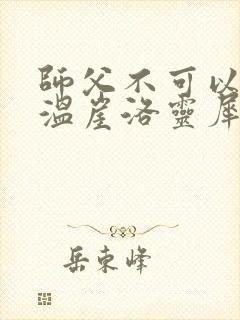 師父不可以
溫崖洛靈犀
岳東峰